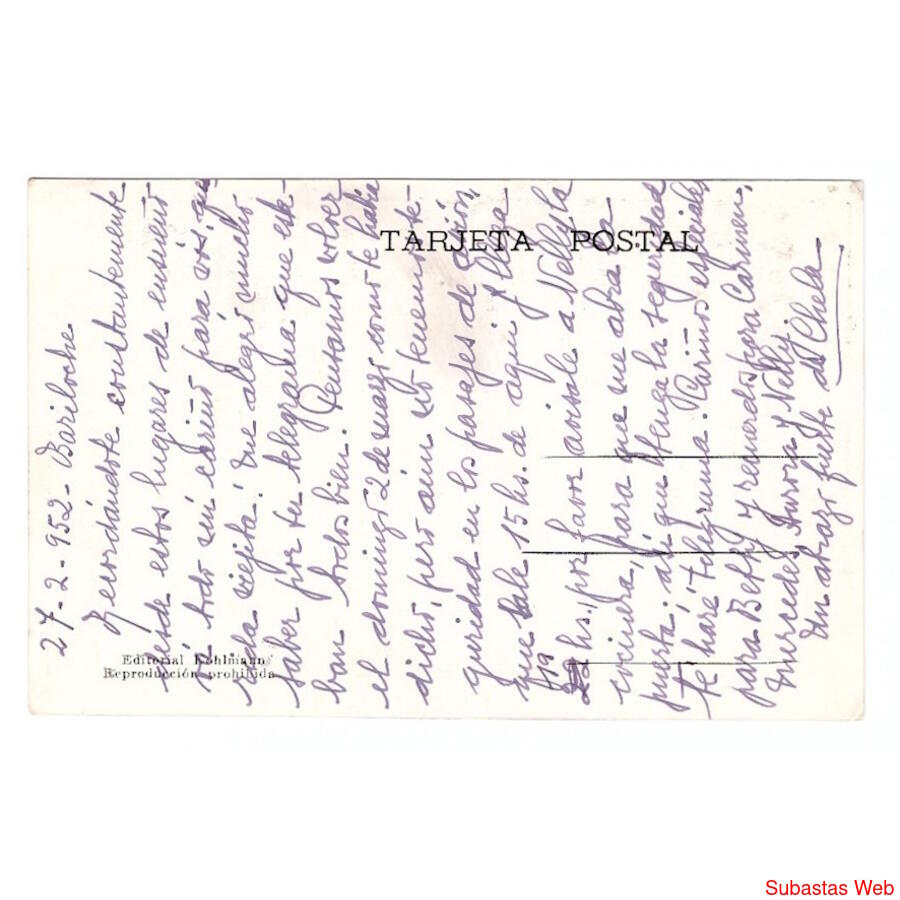 TARJETA POSTAL
27-2-952- Bariloche
Recordándote constantemente
desde estos lugares de ensueño
va todo mi cariño para vos, que
viejita! Me alegró mucho
saber por tu telegrama que esta-
ban todos bien. Pensamos volver
el domingo 2 de marzo como te había
dicho, pero aún no tenemos se-
guridad en los pasajes de avión,
que sale 15 hs. de aquí y llega
19 hs., por favor avisale a Nellyta
cocinera, para que me abra la
puerta; así que tenga la seguridad
te haré telegrama. Cariños especiales
para Betty y recuerdos para Carmen,
Mercedes, Aurora y Nelly.
Un abrazo fuerte de Chela
Editorial Kohlmann
Reproducción prohibida
Subastas Web